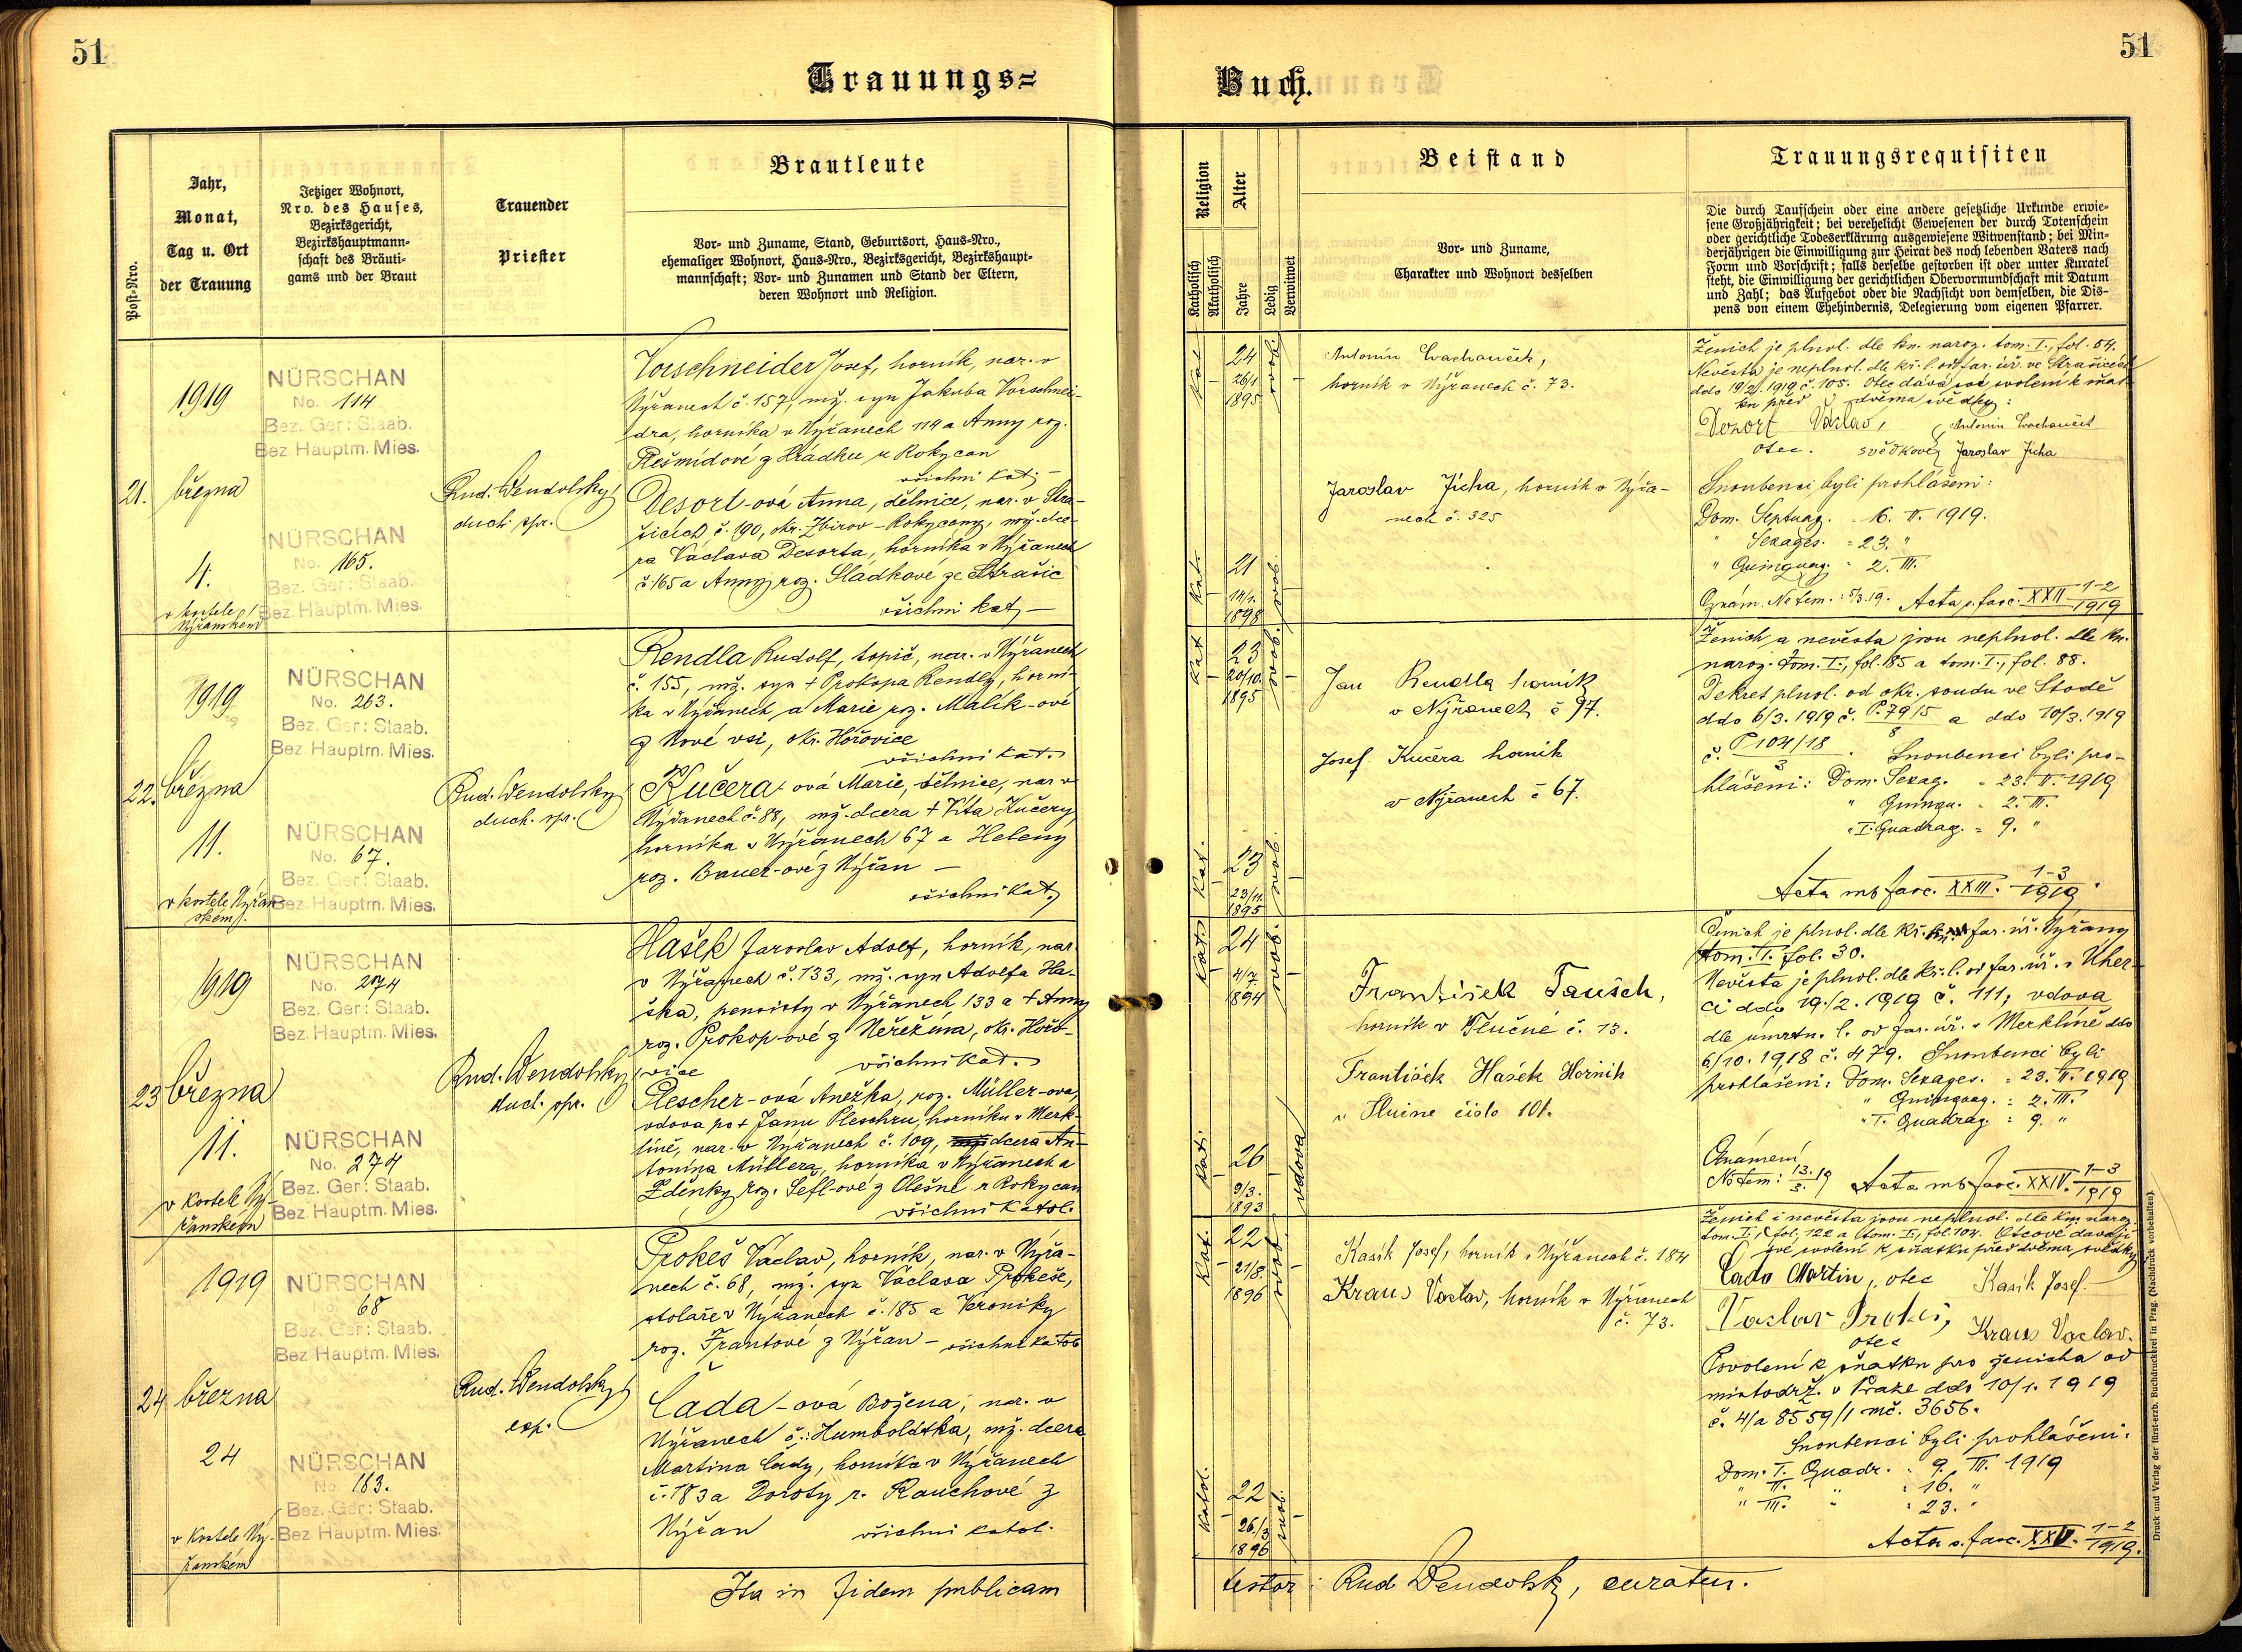 51
51
Trauungs=
Buch.
Post-Nro.
Jahr,
Monat,
Tag u. Ort
der Trauung
Jetziger Wohnort,
Nro. des Hauses,
Bezirksgericht,
Bezirkshauptmann-
schaft des Bräuti-
gams und der Braut
Trauender
Priester
Brautleute
Vor- und Zuname, Stand, Geburtsort, Haus-Nro.,
ehemaliger Wohnort, Haus-Nro., Bezirksgericht, Bezirkshaupt-
mannschaft; Vor- und Zunamen und Stand der Eltern,
deren Wohnort und Religion.
Religion
Katholisch
Akatholisch
Alter
Jahre
Ledig
Verwitwet
Beistand
Vor- und Zuname,
Charakter und Wohnort desselben
Trauungsrequisiten
Die durch Taufschein oder eine andere gesetzliche Urkunde erwie-
sene Großjährigkeit; bei verehelicht Gewesenen der durch Totenschein
oder gerichtliche Todeserklärung ausgewiesene Witwenstand; bei Min-
derjährigen die Einwilligung zur Heirat des noch lebenden Vaters nach
Form und Vorschrift; falls derselbe gestorben ist oder unter Kuratel
steht, die Einwilligung der gerichtlichen Obervormundschaft mit Datum
und Zahl; das Aufgebot oder die Nachsicht von demselben, die Dis-
pens von einem Ehehindernis, Delegierung vom eigenen Pfarrer.
21.
1919
března
4.
v kostele
Nýřanském
NÜRSCHAN
No. 114
Bez. Ger: Staab.
Bez Hauptm. Mies.
NÜRSCHAN
No. 165.
Bez. Ger: Staab.
Bez Hauptm. Mies.
Rud. Wendolský
duch. spr.
Vorschneider Josef, horník, nar. v
Nýřanech č. 157, mž. syn Jakuba Vorschnei-
dra, horníka v Nýřanech 114 a Anny roz.
Plešmídové z Hrádku u Rokycan
všichni kat.
Desort-ová Anna, dělnice, nar. v Stra-
šicích č. 190, okr. Zbirov - Rokycany, mž. dce-
ra Václava Desorta, horníka v Nýřanech
č. 165 a Anny roz. Sládkové ze Strašic
všichni kat. —
Kat.
24
26/1
1895
svob.
Kat.
21
14/1.
1898
svob.
horník v Nýřanech č. 73.
Jaroslav Jícha, horník v Nýřa-
nech č. 325
Ženich je plnol. dle kn. naroz. tom. I., fol. 54.
Nevěsta je neplnol. dle kř. l. od far. úř. ve Strašicích
ddo 19/2. 1919 č. 105. Otec dává své svolení k sňat-
ku před dvěma svědky:
Desort Václav,
otec. svědkové Jaroslav Jícha
Snoubenci byli prohlášeni:
Dom. Septuag. 16. II. 1919.
" Sexages. = 23. "
" Quinquag. " 2. III.
Oznám. Ne tem.: 5/3. 19. Acta s. fasc. XXII 1-2/1919
22.
1919
března
11.
v kostele Nýřan-
ském
NÜRSCHAN
No. 263.
Bez. Ger: Staab.
Bez Hauptm. Mies.
NÜRSCHAN
No. 67.
Bez. Ger: Staab.
Bez. Hauptm. Mies.
Rud. Wendolský
duch. spr.
Rendla Rudolf, topič, nar. v Nýřanech
č. 155, mž. syn † Prokopa Rendly, horní-
ka v Nýřanech a Marie roz. Malík-ové
z Nové vsi, okr. Hořovice
všichni kat.
Kučera-ová Marie, dělnice, nar. v
Nýřanech č. 88, mž. dcera † Víta Kučery
horníka v Nýřanech 67 a Heleny
roz. Bauer-ové z Nýřan —
všichni kat.
Kat
23
20/10.
1895
svob.
Kat.
23
23/11.
1895
svob.
Jan Rendla horník
v Nýřanech č 97.
Josef Kučera horník
v Nýřanech č 67.
Ženich a nevěsta jsou neplnol. dle kn.
naroz. tom. I., fol. 85 a tom. I., fol. 88.
Dekret plnol. od okr. soudu ve Stodě
ddo 6/3. 1919 č. P. 79/5 / 8 a ddo 10/3. 1919
č. P 104/18 / 3. Snoubenci byli pro-
hlášeni: Dom. Sexag. = 23. II. 1919
" Quinqu. = 2. III.
" I. Quadrag. = 9. "
Acta mb fasc. XXIII. 1-3/1919.
23
1919
března
11.
v kostele Ný-
řanském
NÜRSCHAN
No. 274
Bez. Ger: Staab.
Bez Hauptm. Mies.
NÜRSCHAN
No. 274
Bez. Ger: Staab.
Bez Hauptm. Mies.
Rud. Wendolský
duch. spr.
Hašek Jaroslav Adolf, horník, nar.
v Nýřanech č. 133, mž. syn Adolfa Ha-
ška, pensisty v Nýřanech 133 a † Anny
roz. Prokop-ové z Neřežína, okr. Hořo-
vice všichni kat.
Plescher-ová Anežka, roz. Müller-ova,
vdova po † Janu Pleschru, horníku v Merk-
líně, nar. v Nýřanech č. 109, dcera An-
tonína Müllera, horníka v Nýřanech a
Zdeňky roz. Sefl-ové z Olešné u Rokycan
všichni katol.
Kat.
24
4/7.
1894
svob.
Kat.
26
9/3.
1893
vdova
František Tausch,
horník v Tlučné č. 13.
František Hašek Horník
v Tlučne čislo 101.
Ženich je plnol. dle kř. far. úř. Nýřany
tom. I. fol. 30.
Nevěsta je plnol. dle kř. l. od far. úř. v Uher-
ci ddo 19./2. 1919 č. 111, vdova
dle úmrtn. l. od far. úř. v Merklíně ddo
6/10. 1918 č. 479. Snoubenci byli
prohlášeni: Dom. Sexages. = 23. II. 1919
" Quinquag. : 2. III.
" I. Quadrag : 9. "
Oznámení
Ne tem: 13./3. 19 Acta mb fasc. XXIV. 1-3/1919
24
1919
března
24
v Kostele Ný-
řanském
NÜRSCHAN
No. 68
Bez. Ger: Staab.
Bez Hauptm. Mies.
NÜRSCHAN
No. 183.
Bez. Ger: Staab.
Bez Hauptm. Mies.
Rud. Wendolský
exp.
Prokeš Václav, horník, nar. v Nýřa-
nech č. 68, mž. syn Václava Prokeše,
stolaře v Nýřanech č. 185 a Veroniky
roz. Frantové z Nýřan — všichni katol.
Čada-ová Božena, nar. v
Nýřanech č.: Humboldtka, mž. dcera
Martina Čady, horníka v Nýřanech
č. 183 a Doroty r. Rauchové z
Nýřan všichni katol.
Kat.
22
21/8.
1896
svob.
Katol.
22
26./3
1896
svob.
Kasík Josef, horník v Nýřanech č. 184
Kraus Vaclav, horník v Nýřanech
č. 73.
Ženich i nevěsta jsou neplnol. dle kn. naroz.
tom. I., fol. 122 a tom. I., fol. 104. Otcové dávají
své svolení k sňatku před dvěma svědky
Čada Martin, otec Kasík Josef.
Vaclav Prokeš, Kraus Vaclav.
otec
Povolení k sňatku pro ženicha od
místodrž. v Praze ddo 10/1. 1919
č. 4/a 8559/1 mč. 3656.
Snoubenci byli prohlášeni:
Dom. I. Quadr. : 9. III. 1919
" II. " : 16. "
" III. " : 23. "
Acta s. fasc. XXV. 1-2/1919.
Ita in fidem publicam
testor: Rud Wendolský, curatus.
Druck und Verlag der fürst-erzb. Buchdruckerei in Prag. (Nachdruck vorbehalten).